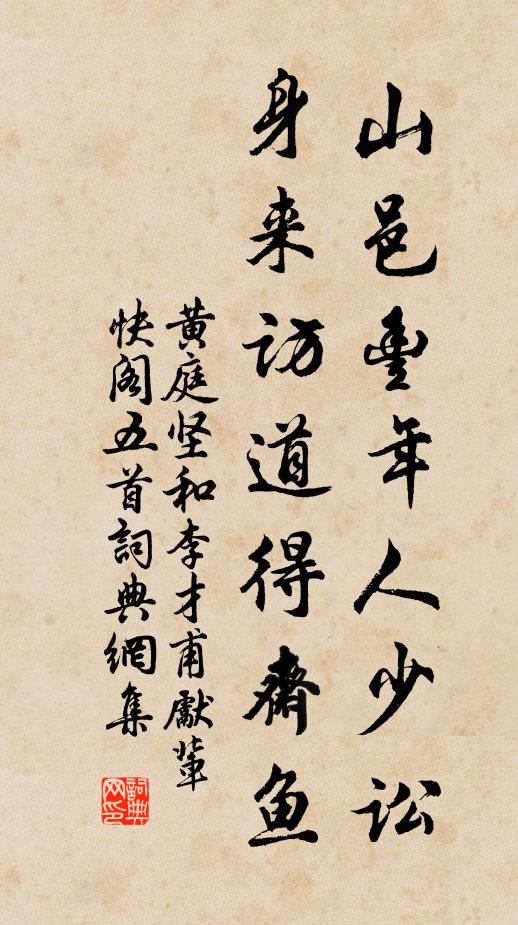 山邑豊年人少訟
身来訪道得齋鱼
黄庭坚和李才甫獻輩
快阁五首詞典網集
詞典网印